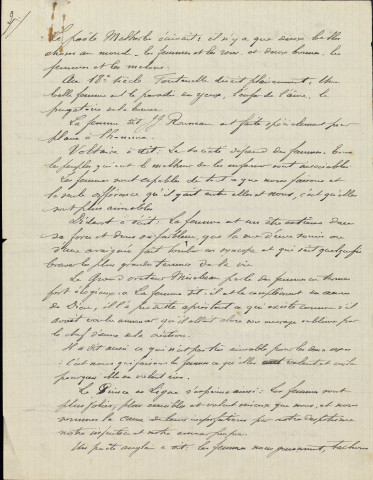 Le poete Malherbe écrivait: il n'y a que deux belles
choses au monde, les femmes et les roses, et deux bonnes, les
femmes et les melons.
Au 18e siècle Fontenelle disait plaisamment, Une
belle femme est le paradis des yeux, l'enfer de l'âme, le
purgatoire de la bourse.
La femme dit J J Rousseau est faite spécialement pour
plaire à l'homme.
Voltaire a dit: La société dépend des femmes. tous
les peuples qui ont le malheur de les enfermer sont insociables
Les femmes sont capables de tout ce que nous faisons et
la seule différence qu'il y ait entre elles et nous, c'est qu'elles
sont plus aimables.
a dit: La femme est un être extreme dans
sa force et dans sa faiblesse, que la vue d'une souris ou
d'une araignée fait tomber en syncope et qui sait quelquefois
braver les plus grandes terreurs de la vie.
Le Grand orateur Mirabeau parle des femmes en termes
fort élogieux: La femme dit-il a le complément en œuvre
de Dieu, il l'a
avait voulu qu'il allait clore son ouvrage sublime par
le chef d'œuvre de la création.
Il a dit aussi ce qui n'est pas très aimable pour les deux sexes
: c'est nous qui faisons les femmes ce qu'elles valent et voilà
pourquoi elles ne valent rien.
Le Prince de Ligne s'exprime ainsi: Les femmes sont
plus jolies, plus sensibles et valent mieux que nous, et nous
sommes la cause de leurs imperfections par notre
notre injustice et notre amour propre.
Un poète anglais a dit: les femmes nous